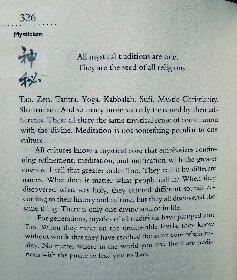 326
Mysticism
神
秘
All mystical traditions are one.
They are the seed of all religions
Tao, Zen, Tantra, Yoga, Kabbalah, Sufi, Mystic Christianity,
Shamanism. And so many more secretly treasured by their ad-
herents. These all share the same mystical sense of communion
with the divine. Meditation is not something peculiar to one
culture.
All cultures know a mystical core that emphasizes contin-
uing refinement, meditation, and unification with the greater
cosmos. I call that greater order Tao. They call it by different
names. What does it matter what people call it? When they
discovered what was holy, they uttered different sounds ac-
cording to their history and culture, but they all discovered the
same thing. There is only one divine source in life.
For generations, mystics of all traditions have
Tao. When they meet on the
without words that they have reached the same
No matter where in the world you are, there are
with the power to lead you to Tao.